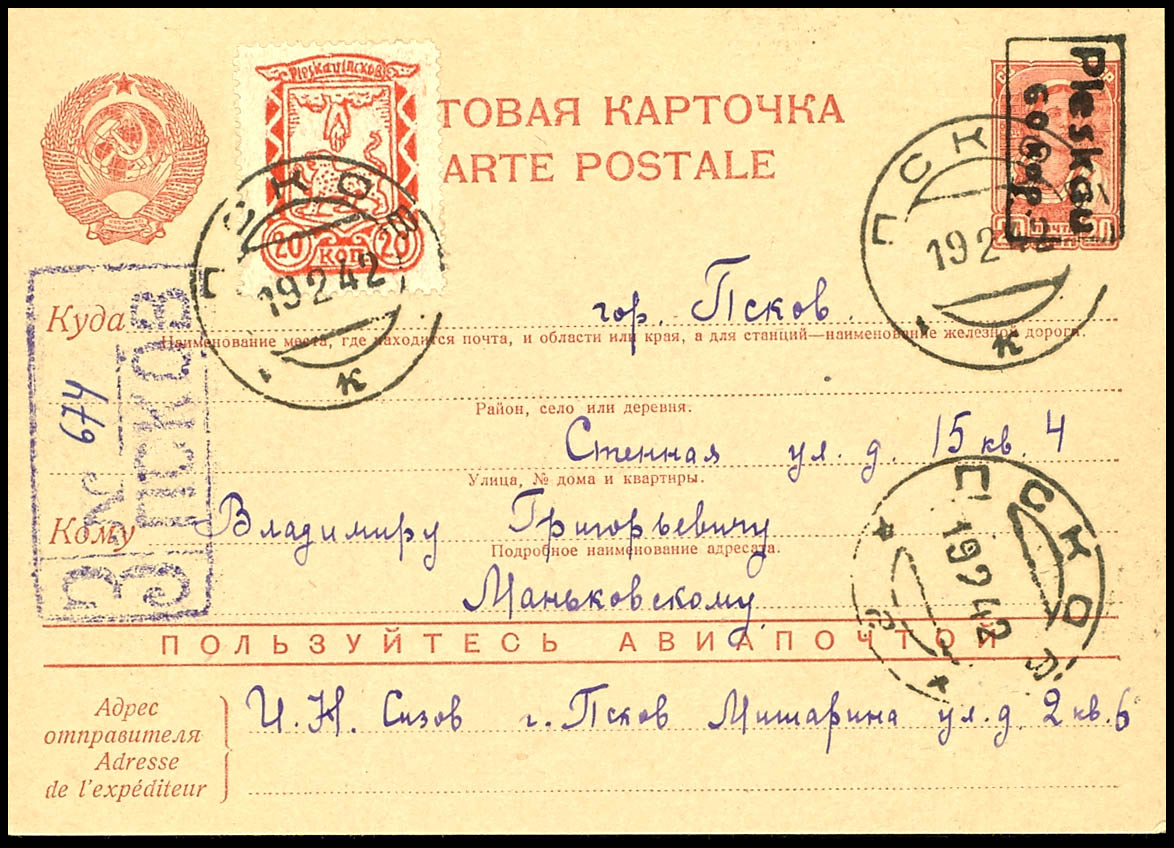 Pleskau/Псков
20 КОП 20
ТОВАЯ КАРТОЧКА
ARTE POSTALE
Pleskau
60 Кор.
ПОЧТА
ПСКОВ
19 2 42
К
ПСК
19 2 42
К
Куда
гор. Псков.
Наименование места, где находится почта, и области или края, а для станций—наименование железной дороги.
Район, село или деревня.
Стенная ул. д. 15 кв. 4
Улица, № дома и квартиры.
Кому
Владимиру Григорьевичу
Подробное наименование адресата.
Маньковскому
З ПСКОВ
№ 674
ПСКОВ
19 2 42
ПОЛЬЗУЙТЕСЬ АВИАПОЧТОЙ
Адрес
отправителя
Adresse
de l'expéditeur
И. Н. Сизов г. Псков Мишарина ул. д 2 кв. 6